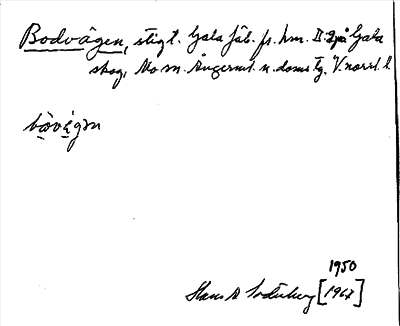 Bodvägen, stigt. Gala fäb. fr. hm. II 2 på Gala
skog, Mo sn. Ångerml. n. doms tg. V. norrl. l.
bòvä̀gən
1950
Hans A Söderberg [1967]